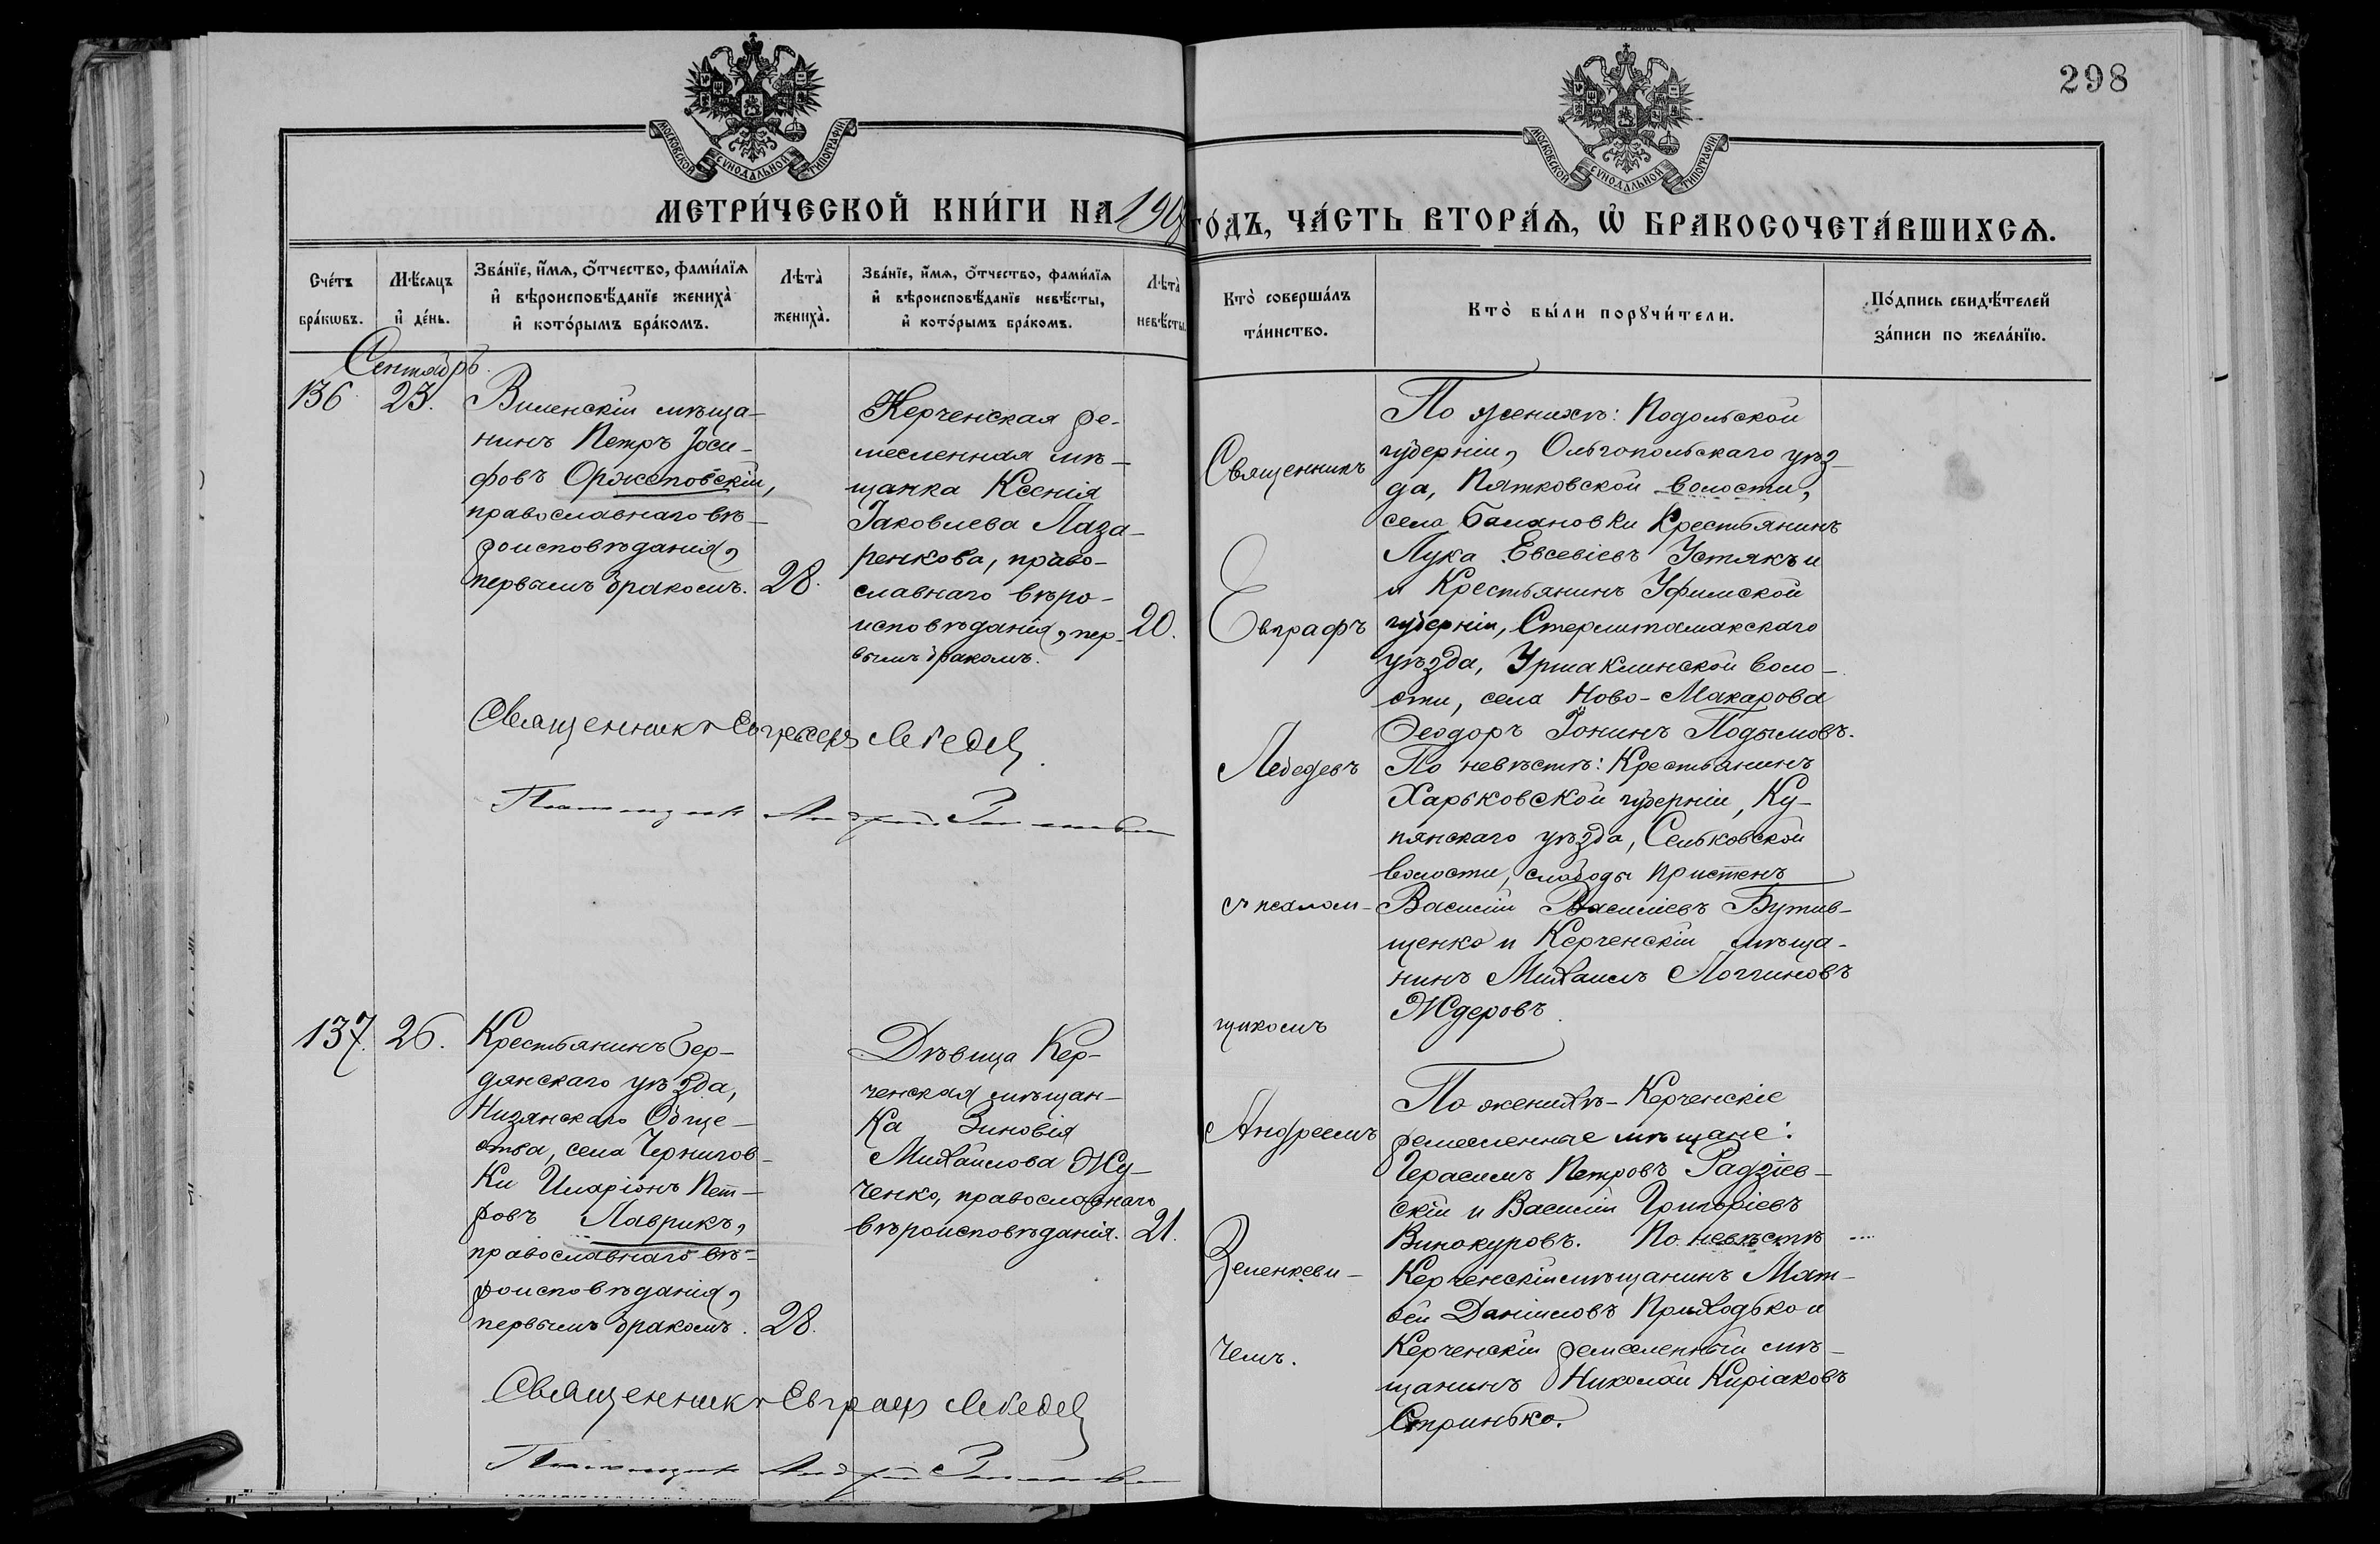 298
МОСКОВСКОЙ СУНОДАЛЬНОЙ ТИПОГРАФІИ
МОСКОВСКОЙ СУНОДАЛЬНОЙ ТИПОГРАФІИ
МЕТРИ́ЧЕСКОЙ КНИ́ГИ НА 190
ГО́ДЪ, ЧА́СТЬ ВТОРА́Ѧ, Ѡ҆ БРАКОСОЧЕТА́ВШИХСѦ.
Сче́тъ бра́кѡвъ.
Мѣ́сяцъ и҆ де́нь.
Зва́нїе, и҆́мѧ, ѻ҆́тчество, фами́лїѧ
и҆ вѣроисповѣ́данїе жениха̀
и҆ кото́рымъ бра́комъ.
Лѣта̀ жениха̀.
Зва́нїе, и҆́мѧ, ѻ҆́тчество, фами́лїѧ
и҆ вѣроисповѣ́данїе невѣ́сты,
и҆ кото́рымъ бра́комъ.
Лѣта̀ невѣ́сты.
Кто̀ соверша́лъ
та́инство.
Кто̀ бы́ли порꙋчи́тели.
По́дпись свидѣ́телей
за́писи по жела́нїю.
Сентябрь.
136
23.
Виленскій мѣща-
нинъ Петръ Іоси-
фовъ Оржеповскій,
православнаго вѣ-
роисповѣданія,
первымъ бракомъ.
28.
Керченская ре-
месленная мѣ-
щанка Ксенія
Іаковлева Лаза-
ренкова, право-
славнаго вѣро-
исповѣданія, пер-
вымъ бракомъ.
20.
Священникъ Евграфъ Лебедев
Псаломщикъ Андрей Зеленкевич
Священникъ
Евграфъ
Лебедевъ
съ псалом-
щикомъ
Андреемъ
Зеленкеви-
чемъ.
По женихѣ: Подольской
губерніи, Ольгопольскаго уѣз-
да, Пятковской волости,
села Балановки Крестьянинъ
Лука Евсевіевъ Устякъ и
и Крестьянинъ Уфимской
губерніи, Стерлитамакскаго
уѣзда, Уршаклинской воло-
сти, села Ново-Макарова
Ѳеодоръ Іонинъ Подымовъ.
По невѣстѣ: Крестьянинъ
Харьковской губерніи, Ку-
пянскаго уѣзда, Сеньковской
волости, слободы Пристенъ
Василій Василіевъ Бутив-
щенко и Керченскій мѣща-
нинъ Михаилъ Логгиновъ
Ждеровъ.
137.
26.
Крестьянинъ Бер-
дянскаго уѣзда,
Низянскаго Обще-
ства, села Чернигов-
ки Иларіонъ Пет-
ровъ Лаврикъ,
православнаго вѣ-
роисповѣданія,
первымъ бракомъ.
28.
Дѣвица Кер-
ченская мѣщан-
ка Зиновія
Михаилова Жу-
ченко, православнаго
вѣроисповѣданія.
21.
Священникъ Евграфъ Лебедев
Псаломщикъ Андрей Зеленкевич
По женихѣ - Керченскіе
ремесленные мѣщане:
Герасимъ Петровъ Радзіев-
скій и Василій Григоріевъ
Винокуровъ. По невѣстѣ
Керченскій мѣщанинъ Мат-
вѣй Даніиловъ Приходько и
Керченскій ремесленный мѣ-
щанинъ Николай Киріаковъ
Стринько.